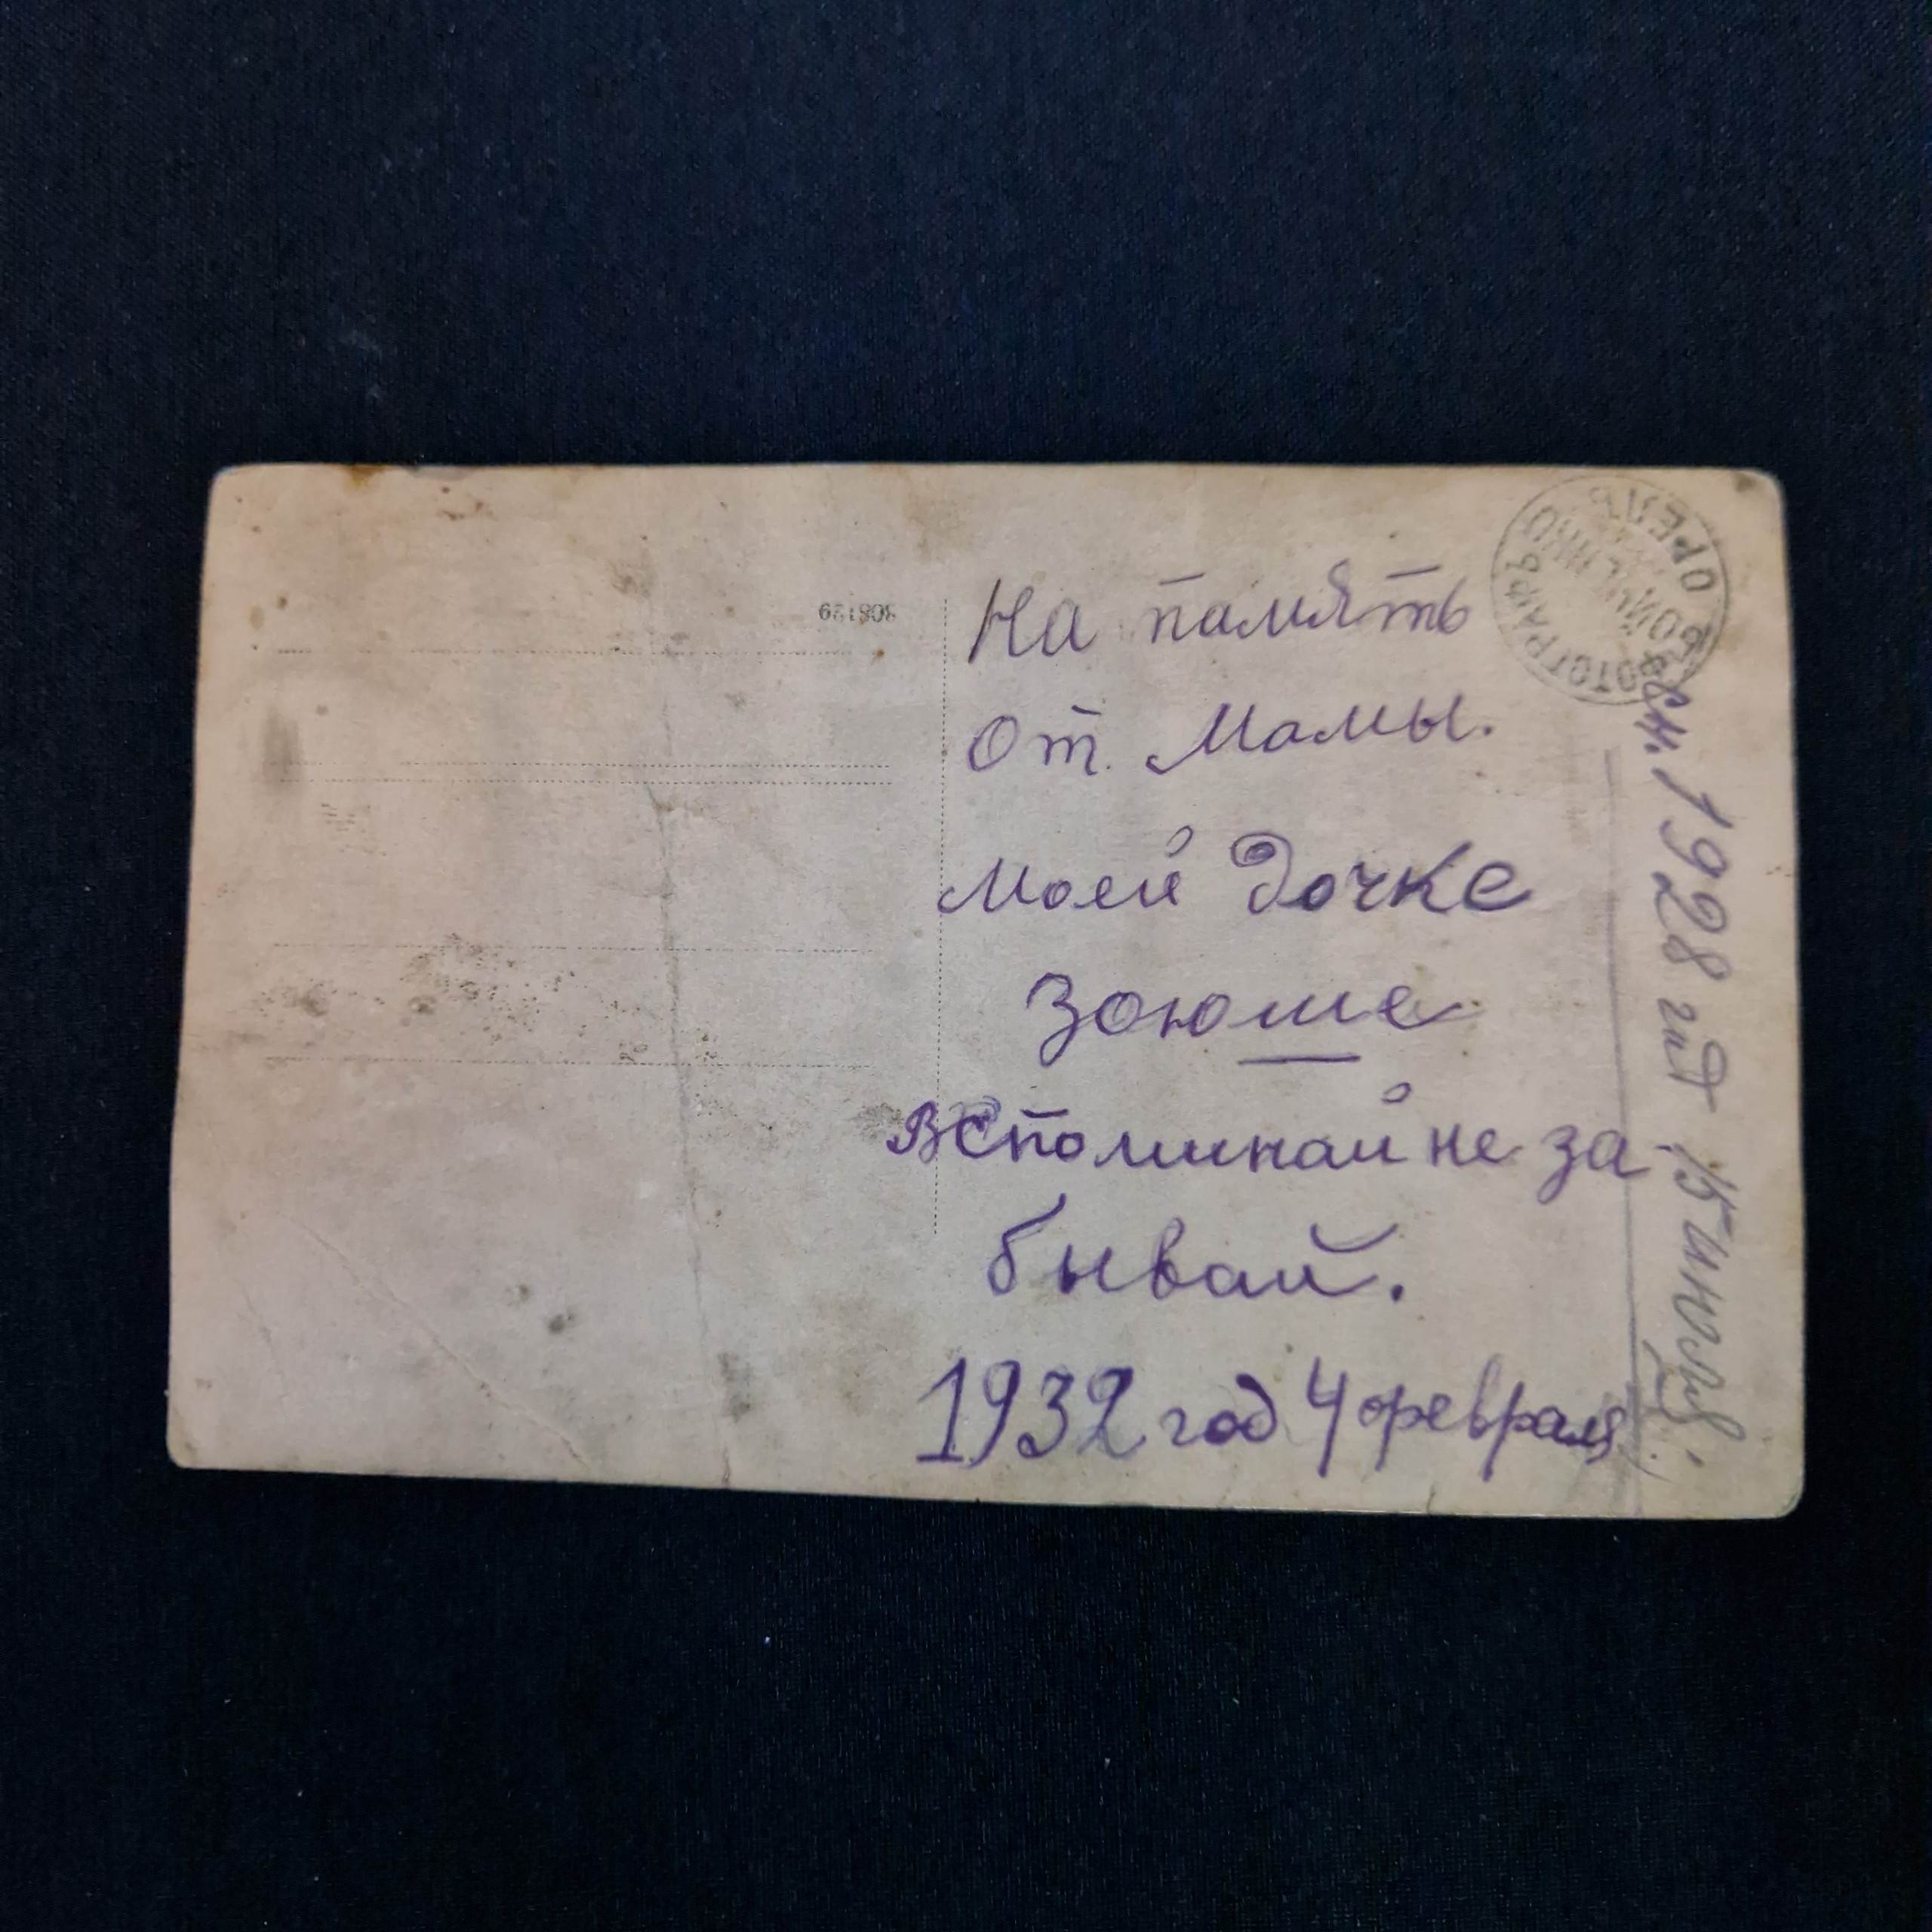 На память
От Мамы.
моей дочке
Зоюше
Вспоминай не за
бывай.
1932 год 4 февраля
сн. 1928 год 15 июля.
ФОТОГРАФЪ
ОРЕЛЪ